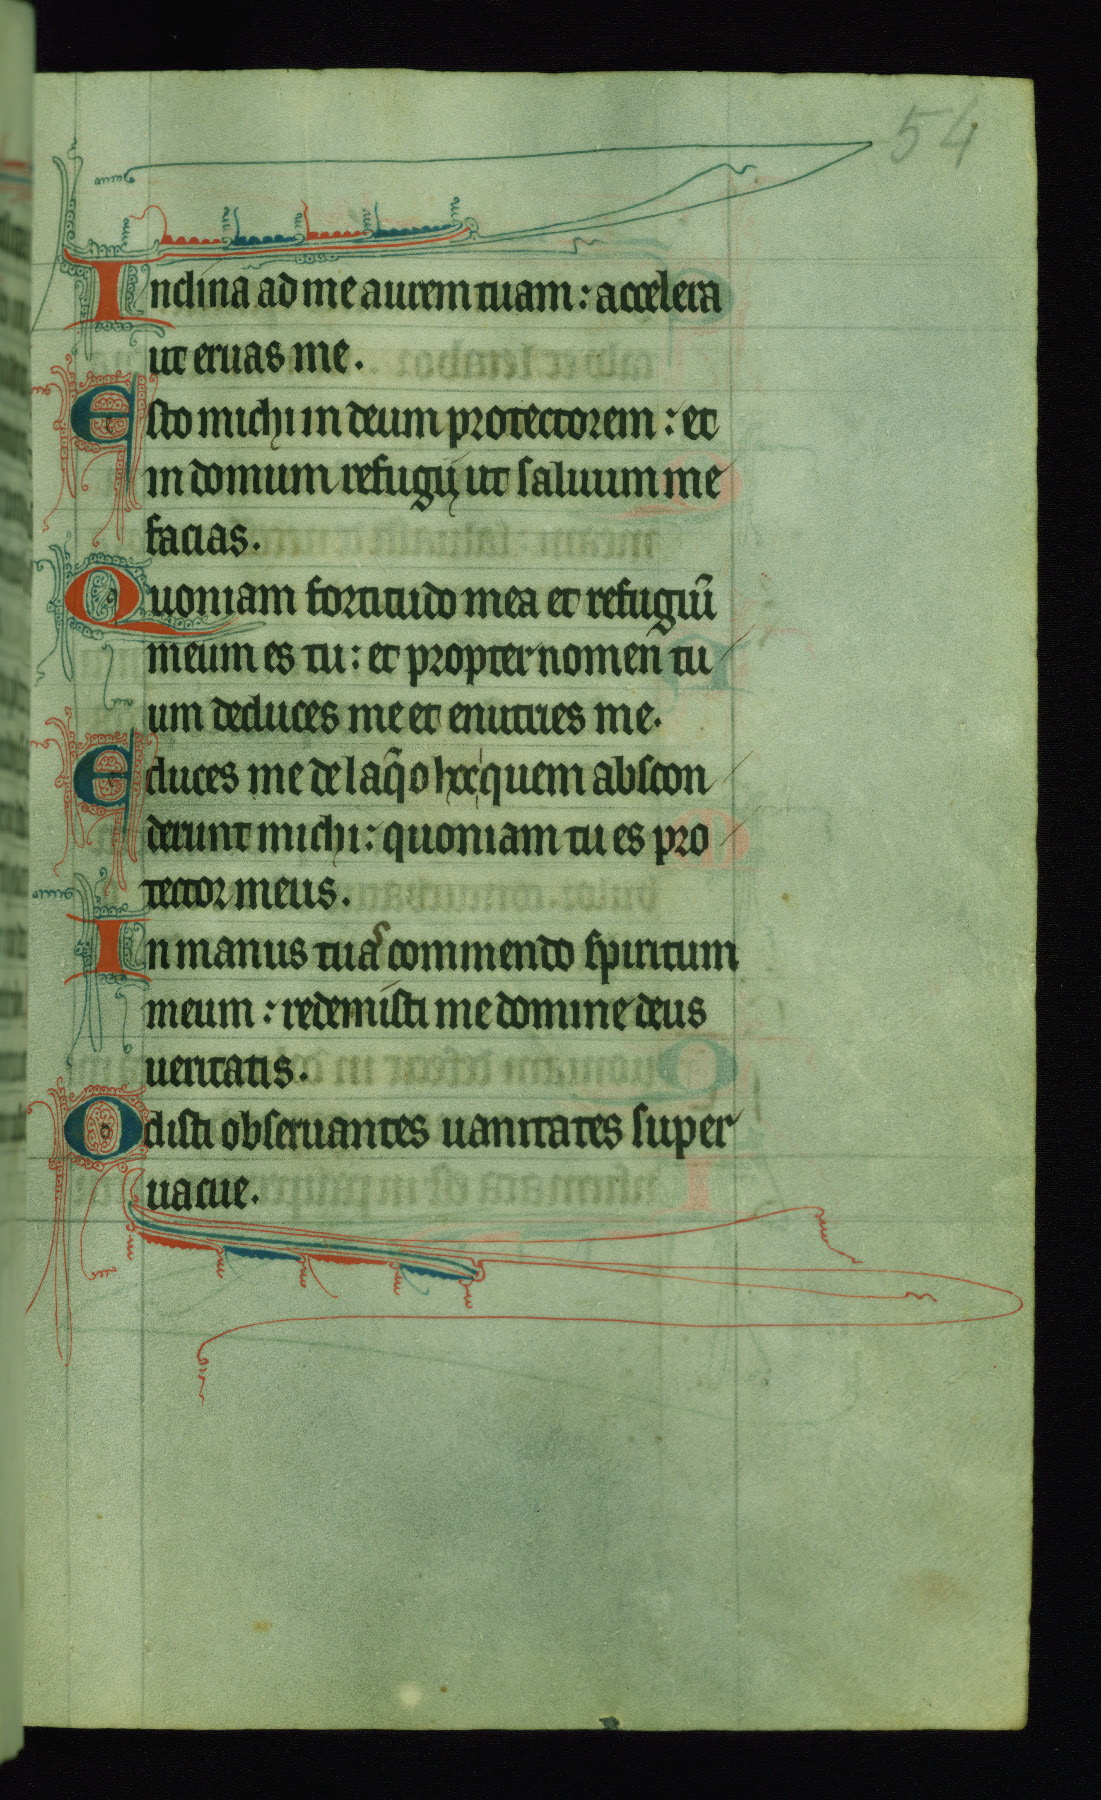 54
Inclina ad me aurem tuam : accelera
ut eruas me .
Esto michi in deum protectorem : et
in domum refugij ut saluum me
facias .
Quoniam fortitudo mea et refugiū
meum es tu : et propter nomen tu
um deduces me et enutries me .
Educes me de laq̄o hoc quem abscon
derunt michi : quoniam tu es pro
tector meus .
In manus tuas commendo spiritum
meum : redemisti me domine deus
ueritatis .
Odisti obseruantes uanitates super
uacue .